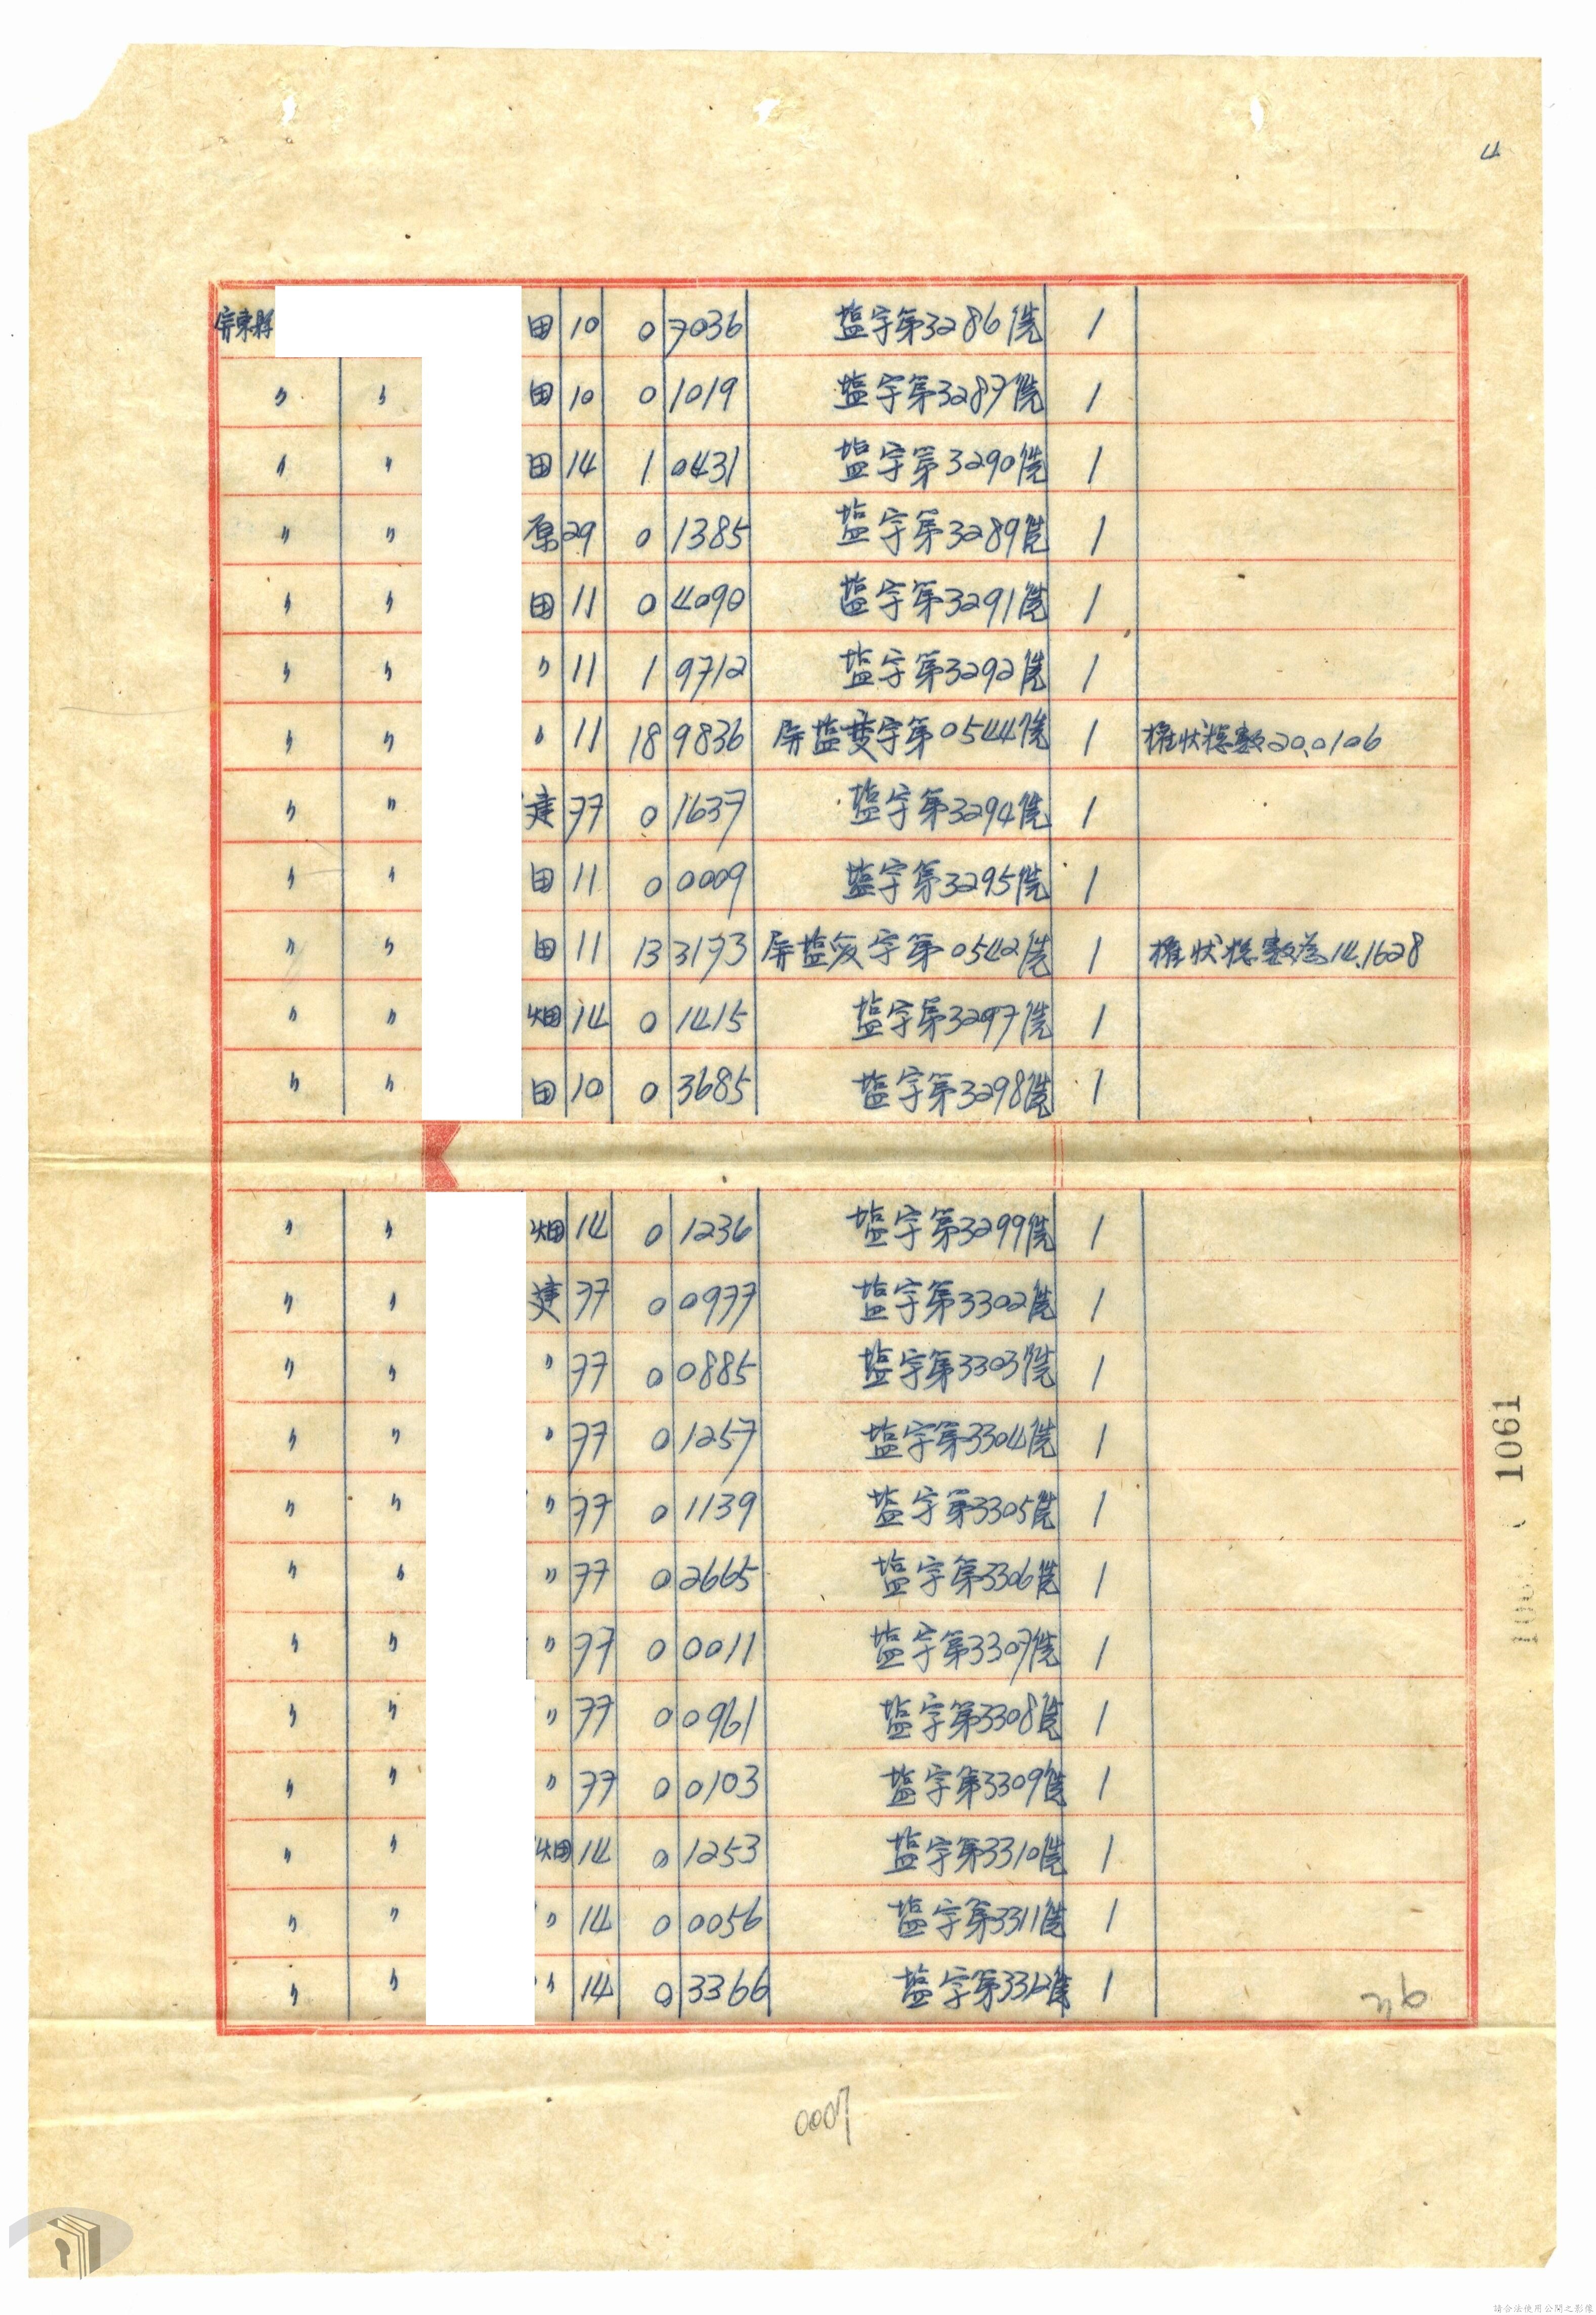 4
屏東縣 田 10 0 7036 塩字第3286號 1
〃 〃 田 10 0 1019 塩字第3287號 1
〃 〃 田 14 1 0431 塩字第3290號 1
〃 〃 原 29 0 1385 塩字第3289號 1
〃 〃 田 11 0 4090 塩字第3291號 1
〃 〃 〃 11 1 9712 塩字第3292號 1
〃 〃 〃 11 18 9836 屏塩變字第0544號 1 權狀總數20.0106
〃 〃 建 77 0 1637 塩字第3294號 1
〃 〃 田 11 0 0009 塩字第3295號 1
〃 〃 田 11 13 3173 屏塩変字第0542號 1 權狀總數為14.1628
〃 〃 畑 14 0 1415 塩字第3297號 1
〃 〃 田 10 0 3685 塩字第3298號 1
〃 〃 畑 14 0 1236 塩字第3299號 1
〃 〃 建 77 0 0977 塩字第3302號 1
〃 〃 〃 77 0 0885 塩字第3303號 1
〃 〃 〃 77 0 1257 塩字第3304號 1
〃 〃 〃 77 0 1139 塩字第3305號 1
〃 〃 〃 77 0 2665 塩字第3306號 1
〃 〃 〃 77 0 0011 塩字第3307號 1
〃 〃 〃 77 0 0961 塩字第3308號 1
〃 〃 〃 77 0 0103 塩字第3309號 1
〃 〃 畑 14 0 1253 塩字第3310號 1
〃 〃 〃 14 0 0056 塩字第3311號 1
〃 〃 〃 14 0 3366 塩字第3312號 1
1061
0007
請合法使用公開之影像